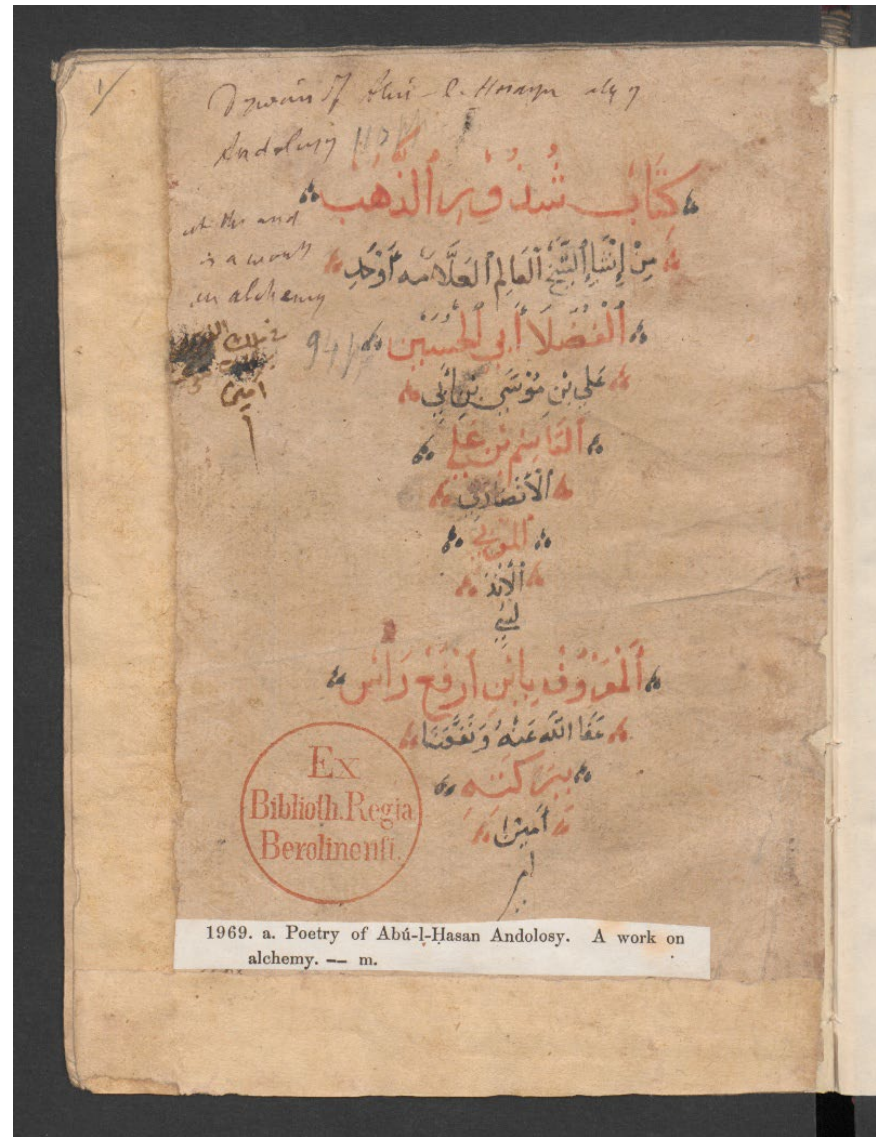 1/
Dywân of Abú-l-Hosayn aly
Andolusy
at the end
is a work
on alchemy
كِتَابُ شُذُورِ ٱلذَّهَب
مِنْ إِنْشَاءِ ٱلشَّيْخِ ٱلْعَالِمِ ٱلْعَلَّامَه أَوْحَدِ
ٱلْفُضَلَا أَبِي ٱلْحُسَيْنِ
عَلِي بْنِ مُوسَى بْنِ أَبِي
ٱلْقَاسِم بْنِ عَلِي
ٱلْأَنْصَارِي
ٱلْأَنْدَ
لُسِي
ٱلْمَعْرُوفِ بِابْنِ أَرْفَعْ رَأْسَ
عَفَا ٱللَّه عَنْهُ وَنَفَعَنَا
بِبَرَكَتِهِ
أَمِين
امين
Ex
Biblioth. Regia
Berolinensi.
1969. a. Poetry of Abú-l-Ḥasan Andolosy. A work on
alchemy. — m.